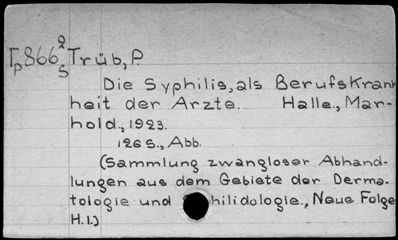 Tp866 2/5 Trüb, P
Die Syphilis, als Berufskrank
heit der Arzte. Halle., Mar-
hold., 1923.
126 S., Abb.
(Sammlung zwangloser Abhand-
lungen aus dem Gebiete der Derma-
tologie und philidologie., Neue Folge
H.1.)